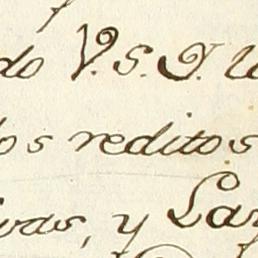 do V. S. I.
los reditos
ivas, y Lar